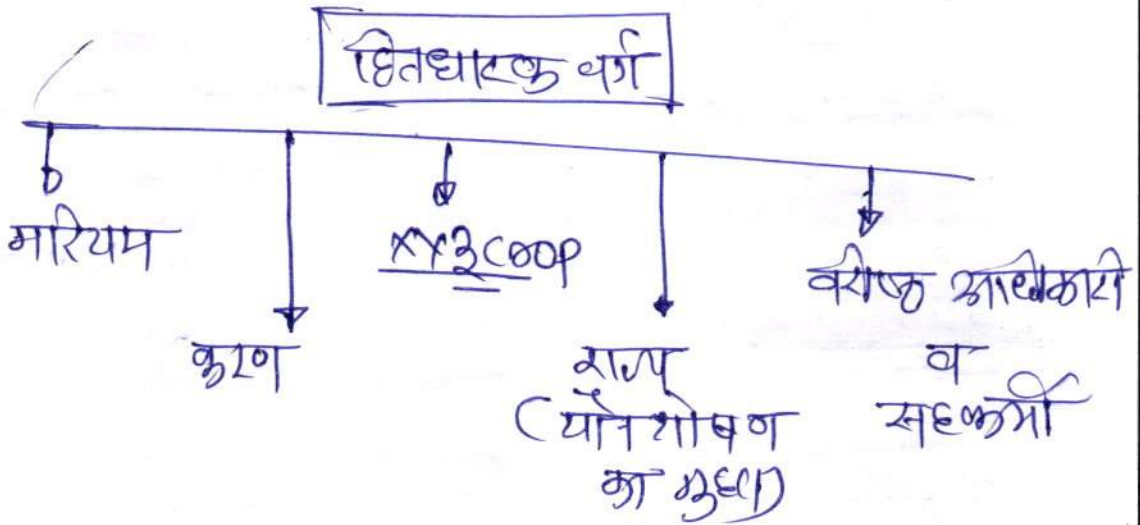 हितधारक वर्ग
मारियम
करण
XYZ COOP
राज्य
(यौन शोषण
का मुद्दा)
वरीष्ठ अधिकारी
व
सहकर्मी